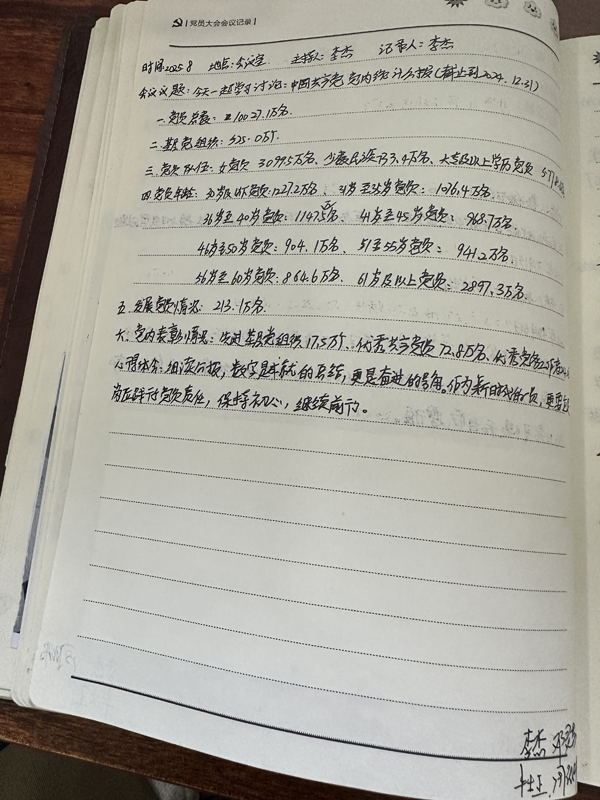 党员大会会议记录
时间2025.8 地点:会议室 主持人:李杰 记录人:李杰
会议议题:今天一起学习讨论:中国共产党党内统计公报(截止到2024.12.31)
一.党员总数:10027.1万名.
二.基层党组织:525.0万个.
三.党员队伍:女党员3099.5万名、少数民族773.4万名、大专及以上学历党员
四.党员年龄:30岁及以下党员:1272万名、31岁至35岁党员:1076.4万名、
36岁至40岁党员:1147.5万名、41岁至45岁党员:968.7万名.
46岁至50岁党员:904.1万名、51至55岁党员:941.2万名.
56岁至60岁党员:864.6万名、61岁及以上党员:2897.3万名.
五.发展党员情况:213.1万名.
六.党内表彰情况:先进基层党组织17.5万个、优秀共产党员72.8万名、优秀党务
心得体会:细读公报,数字是成就的总结,更是奋进的号角。作为新时代的党员,更要
岗位践行党员责任,保持初心,继续前行。
李杰